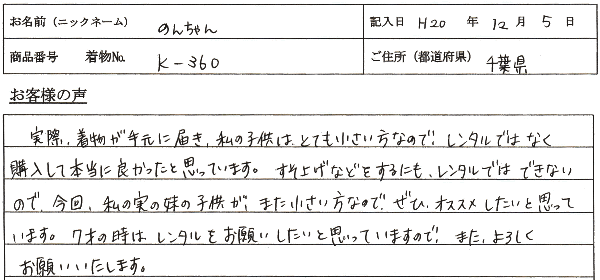 お名前（ニックネーム） のんちゃん 記入日 H20 年 12 月 5 日
商品番号 着物No. K-360 ご住所（都道府県） 千葉県
お客様の声
実際、着物が手元に届き、私の子供は、とても小さい方なので、レンタルではなく
購入して本当に良かったと思っています。すそ上げなどをするにも、レンタルではできない
ので、今回、私の実の妹の子供が、また小さい方なので、ぜひ、オススメしたいと思って
います。7才の時はレンタルをお願いしたいと思っていますので、また、よろしく
お願いいたします。